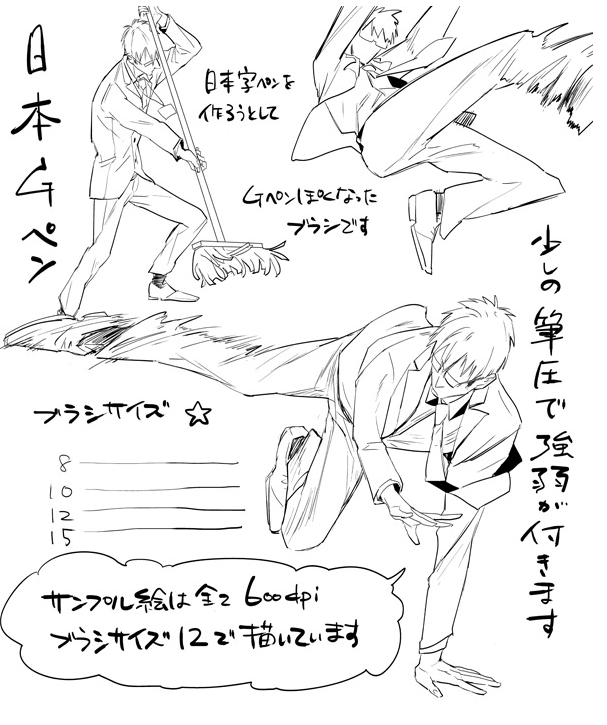 日本Gペン
日本字ペンを
作ろうとして
Gペンぽくなった
ブラシです
少しの筆圧で強弱が付きます
ブラシサイズ☆
8
10
12
15
サンプル絵は全て600dpi
ブラシサイズ12で描いています